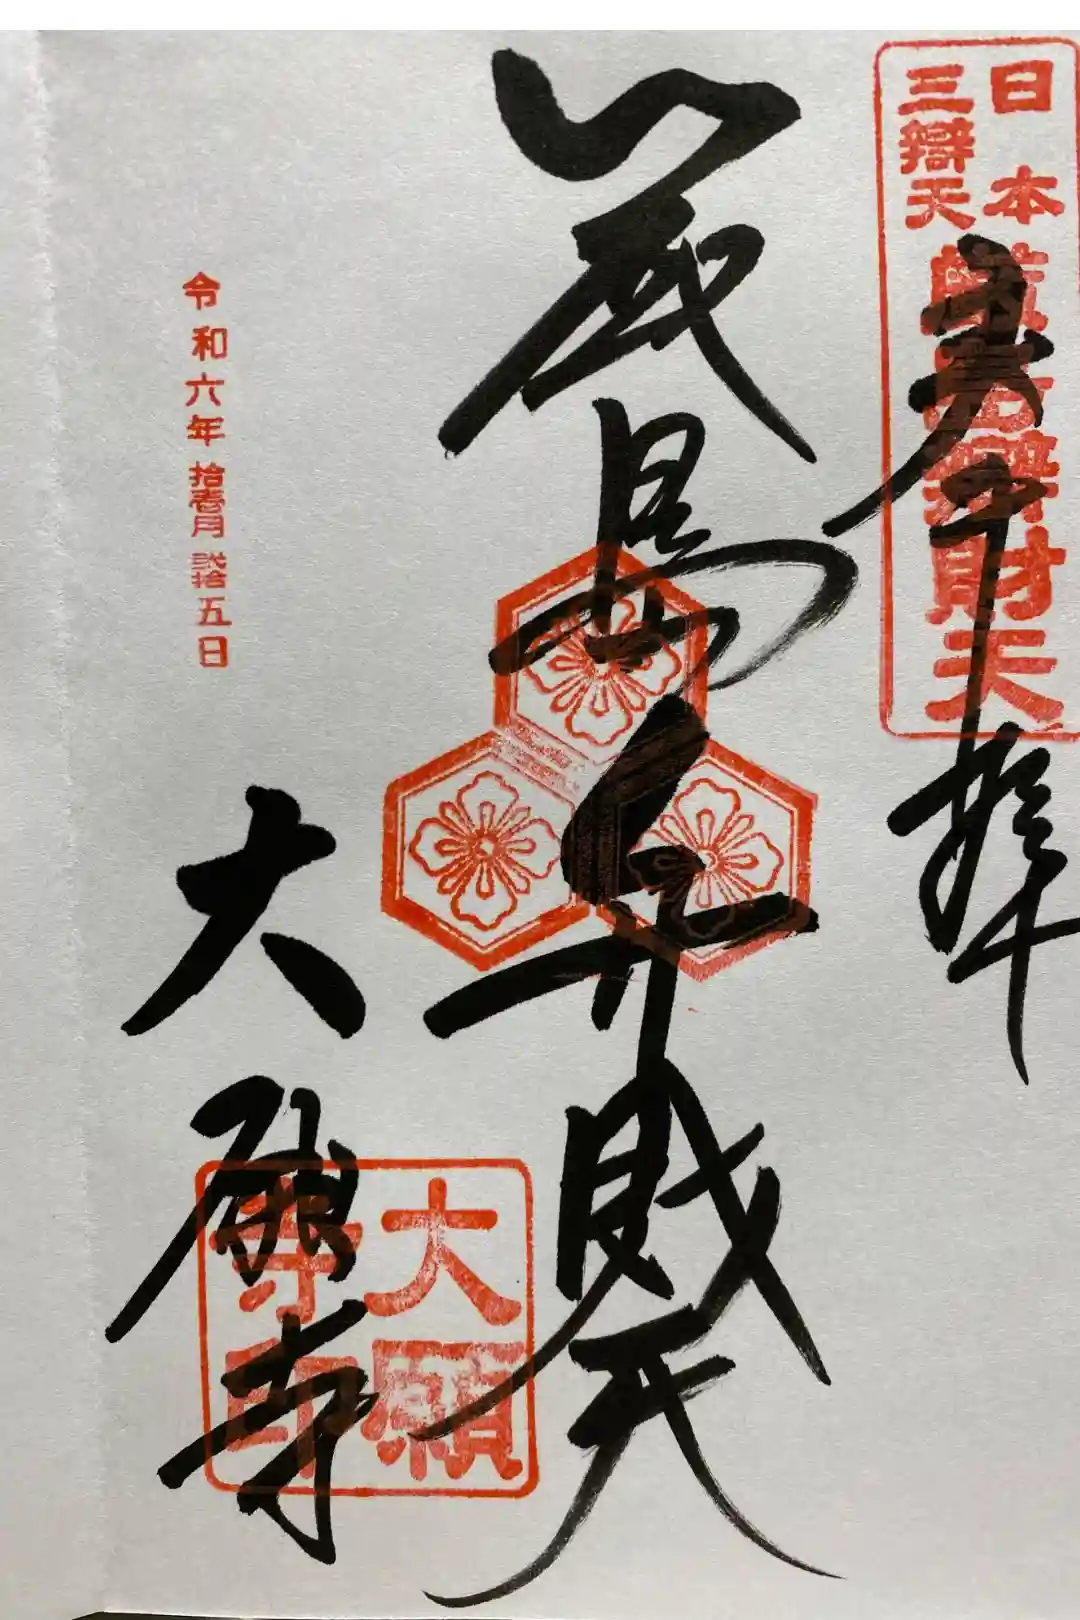 日本
三辯天
嚴島辯財天
奉拝
厳島弁財天
令和六年拾壱月弐拾五日
大願寺
大願
寺印